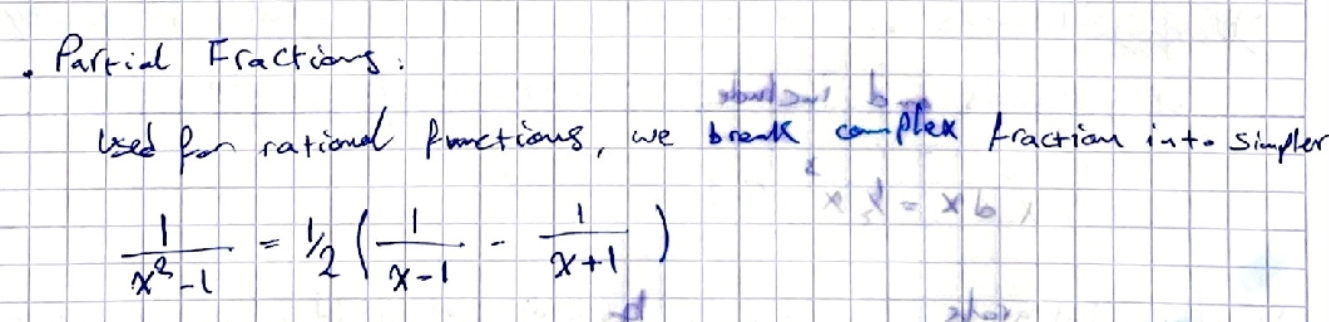 . Partial Fractions:
Used for rational functions, we break complex fraction into simpler
1/(x²-1) = 1/2 ( 1/(x-1) - 1/(x+1) )